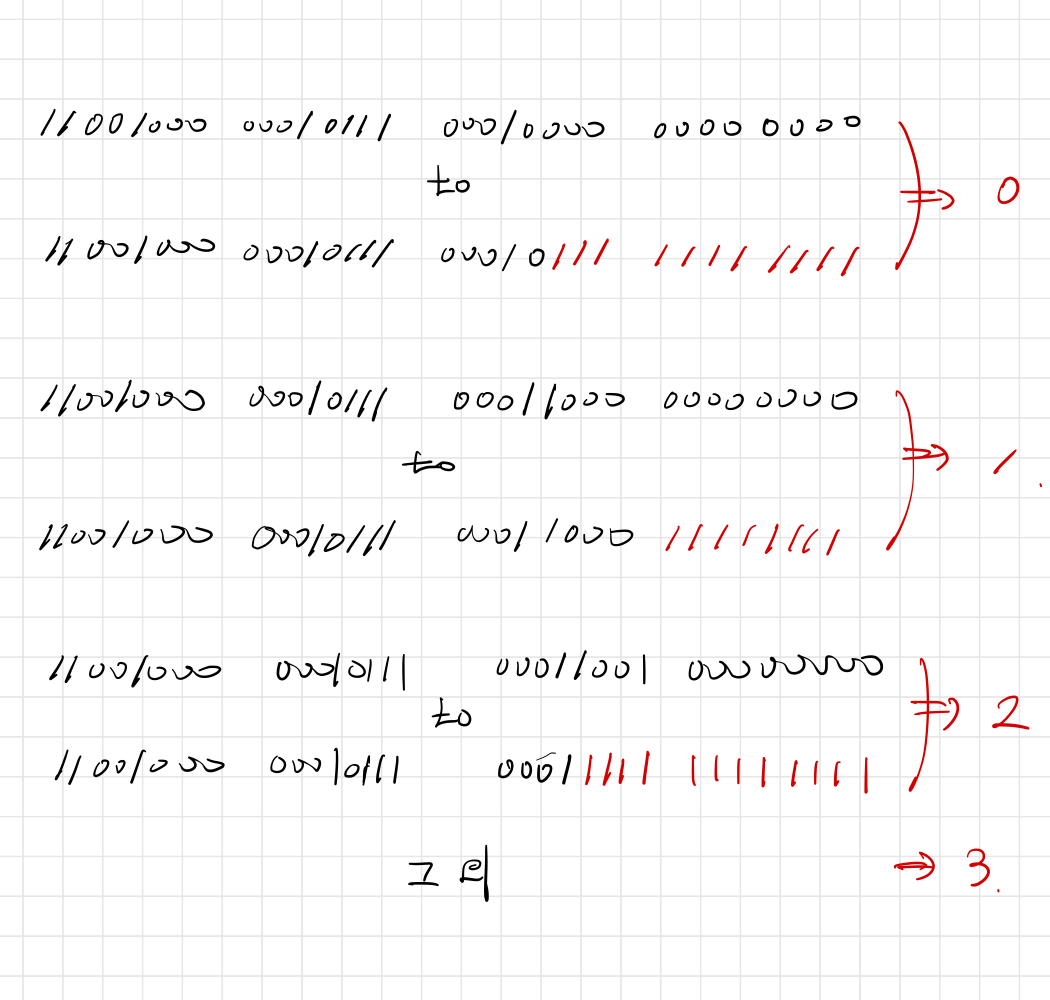 11001000 00010111 00010000 00000000
to ⇒ 0
11001000 00010111 00010111 11111111
11001000 00010111 00011000 00000000
to ⇒ 1.
11001000 00010111 00011000 11111111
11001000 00010111 00011001 00000000
to ⇒ 2
11001000 00010111 00011111 11111111
그 외 ⇒ 3.